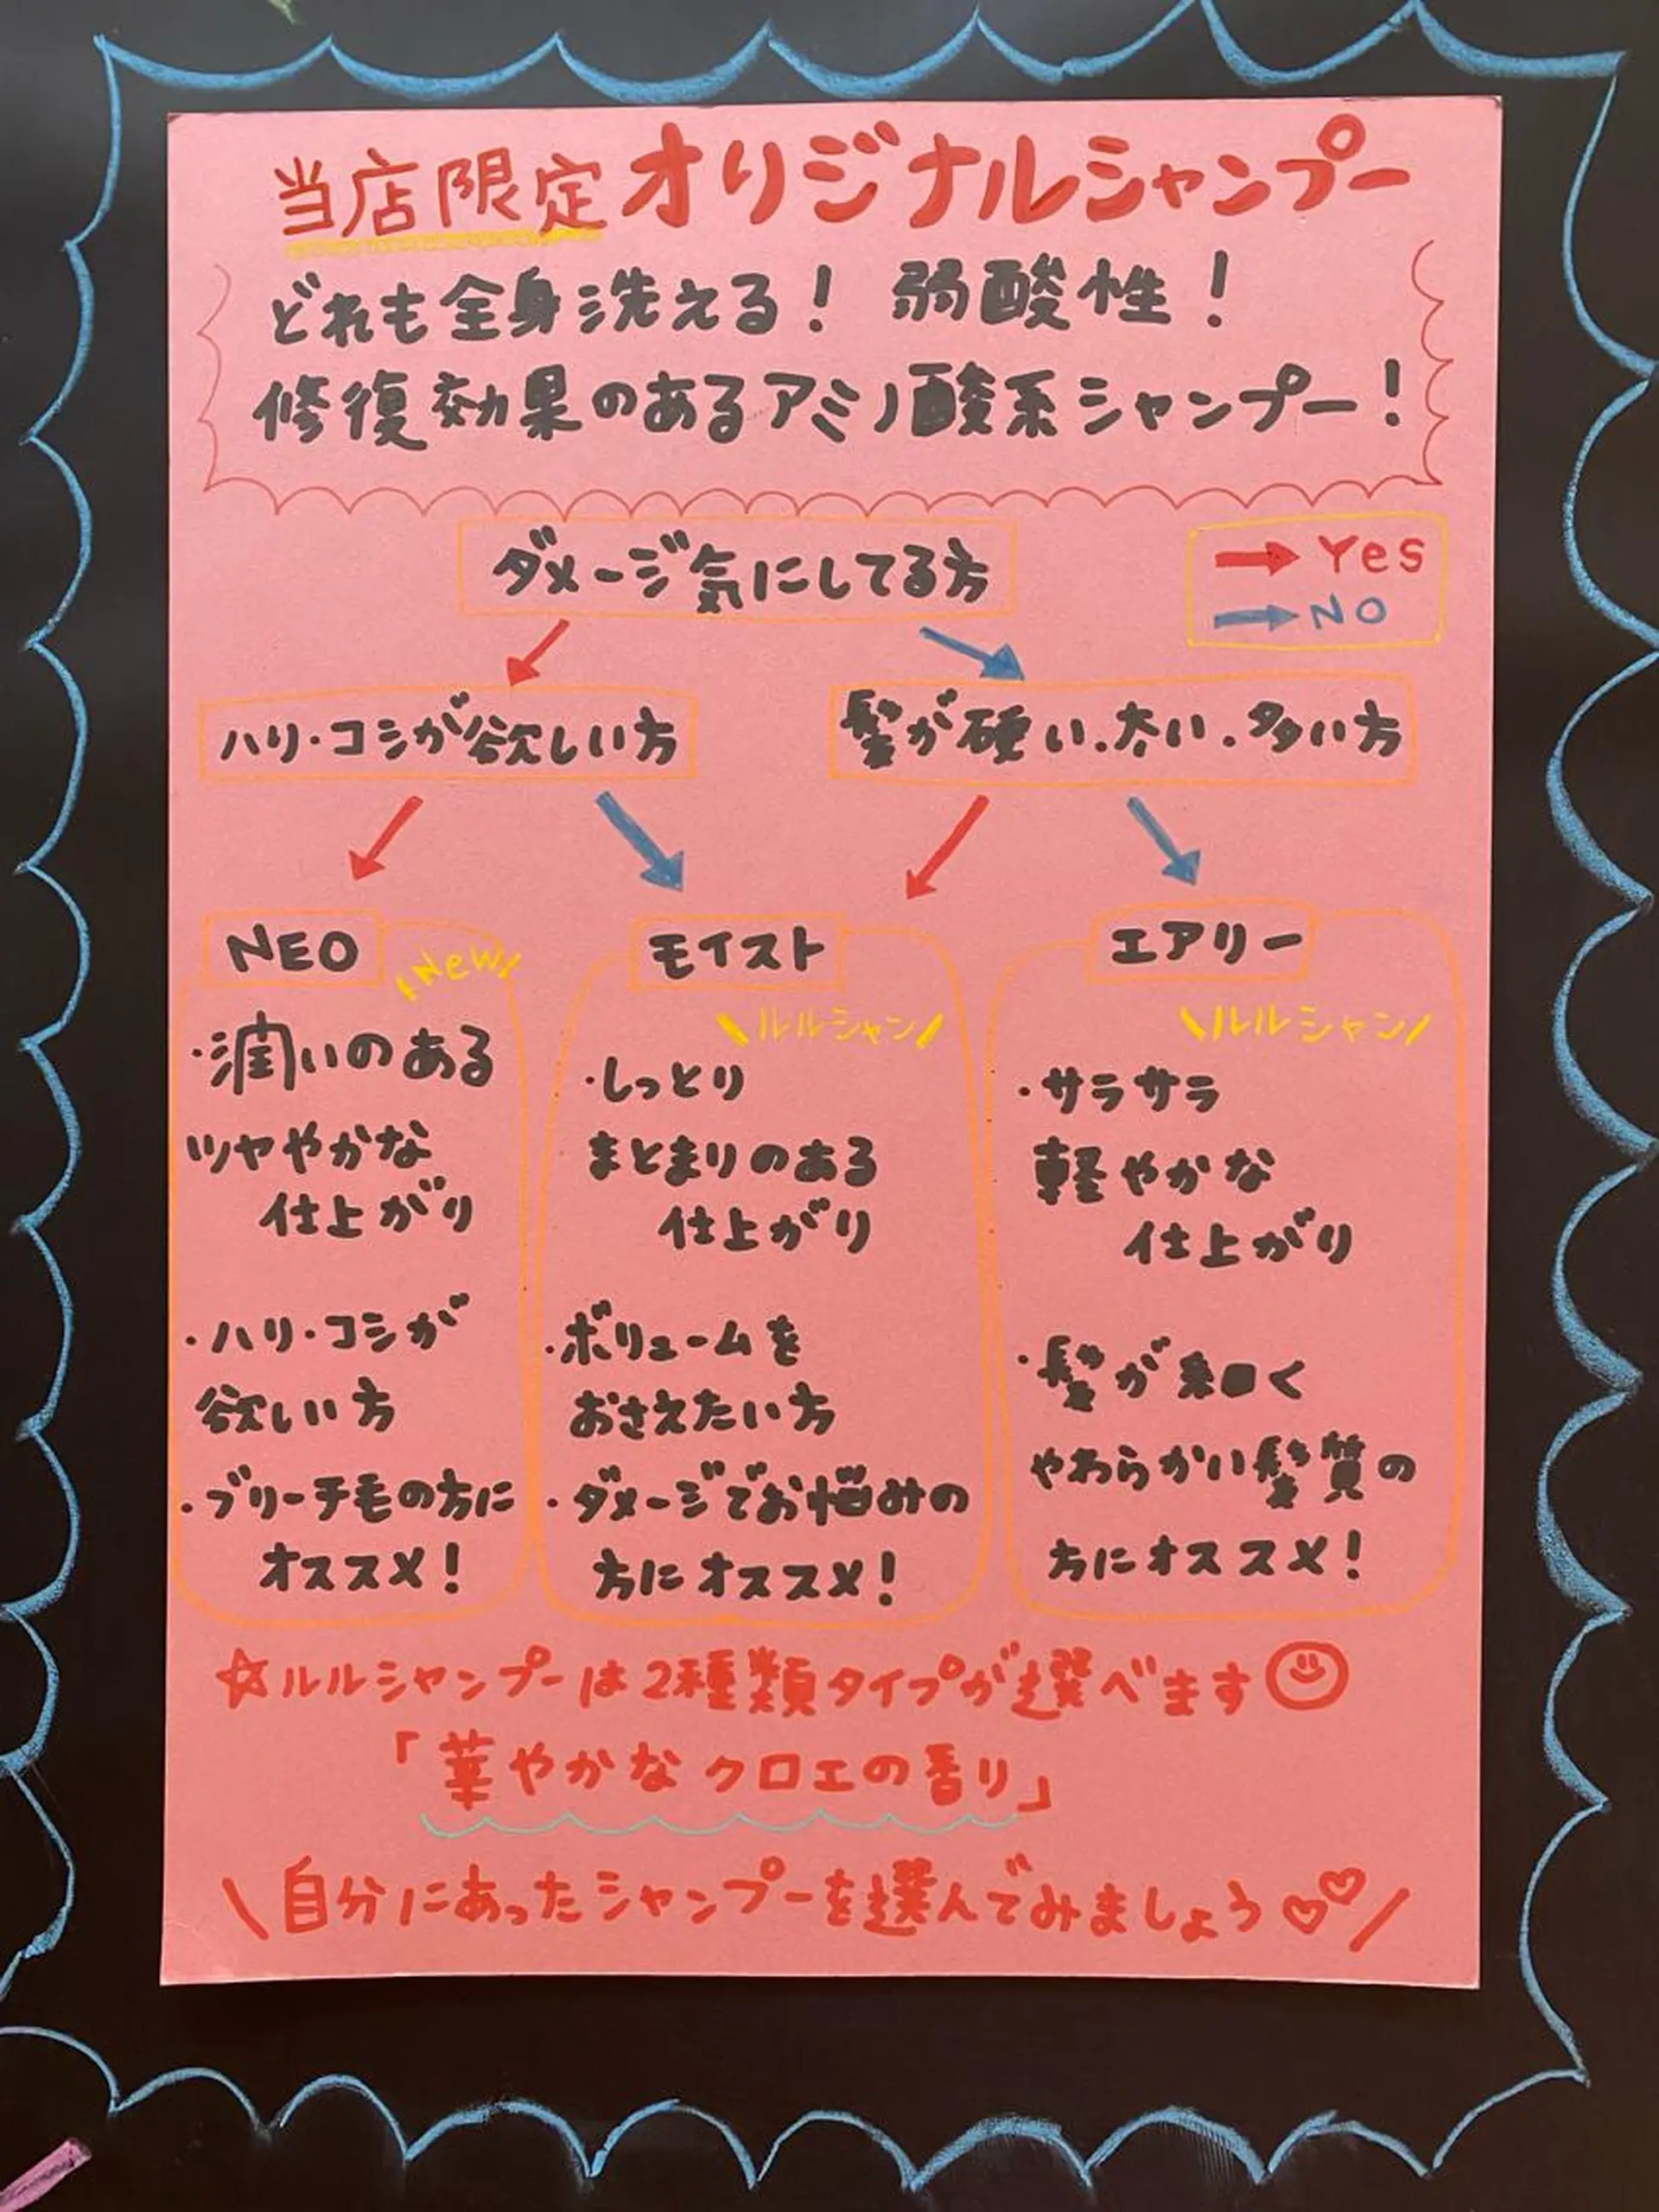 当店限定オリジナルシャンプー
どれも全身洗える! 弱酸性!
修復効果のあるアミノ酸系シャンプー!
ダメージ気にしてる方
→ Yes
→ NO
ハリ・コシが欲しい方
髪が硬い・太い・多い方
NEO
New
・潤いのある
ツヤやかな
仕上がり
・ハリ・コシが
欲しい方
・ブリーチ毛の方に
オススメ!
モイスト
\ルルシャン/
・しっとり
まとまりのある
仕上がり
・ボリュームを
おさえたい方
・ダメージでお悩みの
方にオススメ!
エアリー
\ルルシャン/
・サラサラ
軽やかな
仕上がり
・髪が細く
やわらかい髪質の
方にオススメ!
☆ルルシャンプーは2種類タイプが選べます
「華やかなクロエの香り」
\自分にあったシャンプーを選んでみましょう♡♡/